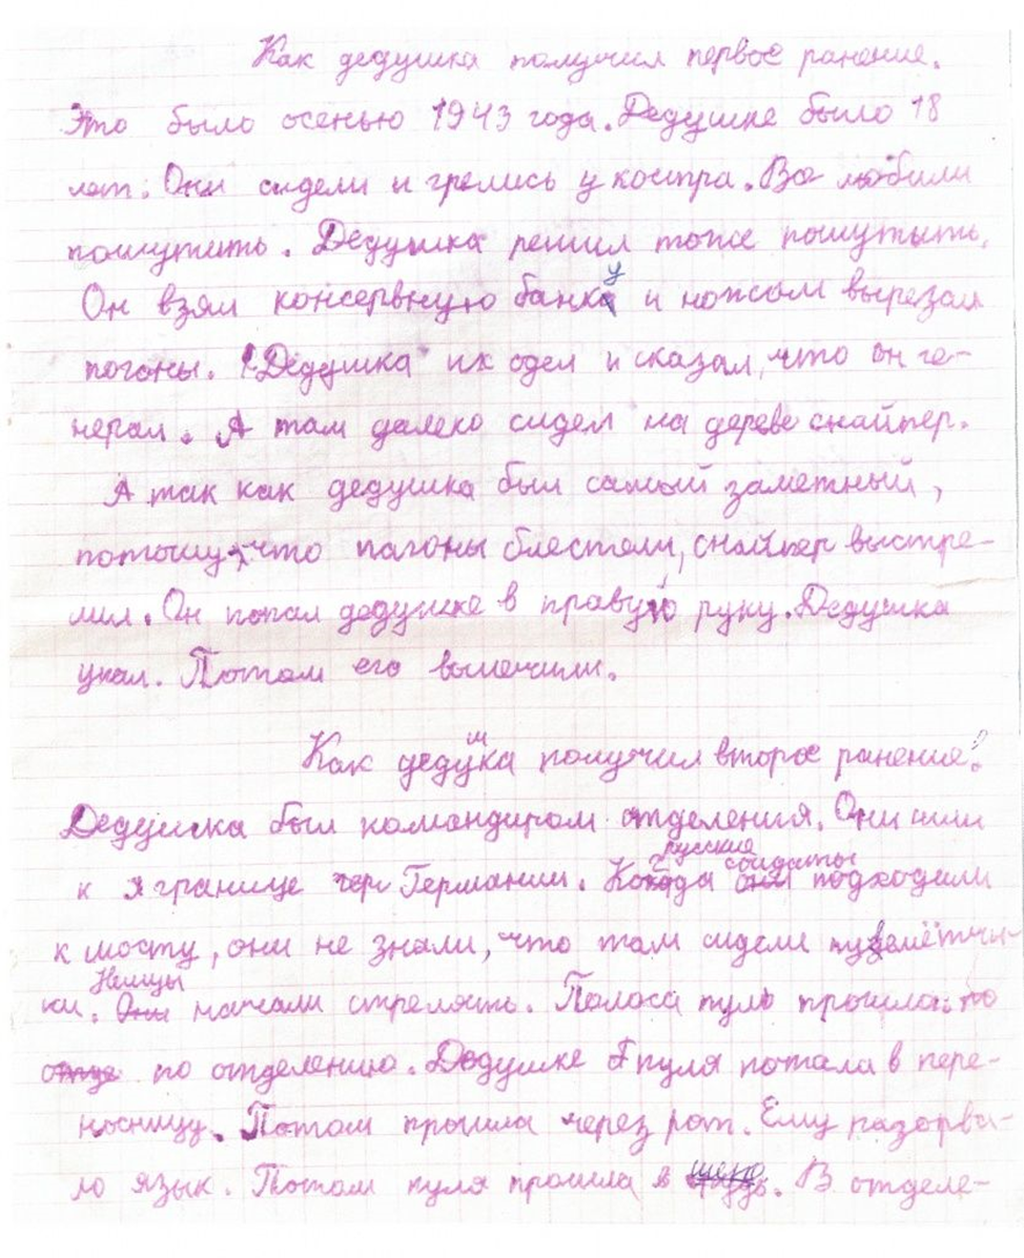 Как дедушка получил первое ранение.
Это было осенью 1943 года. Дедушке было 18
лет. Они сидели и грелись у костра. Все любили
пошутить. Дедушка решил тоже пошутыть.
Он взял консервную банку и ножом вырезал
погоны. Дедушка их одел и сказал, что он ге-
нерал. А там далеко сидел на дереве снайпер.
А так как дедушка был самый заметный,
потому что пагоны блестели, снайпер выстре-
лил. Он попал дедушке в правую руку. Дедушка
упал. Потом его вылечили.
Как дедушка получил второе ранение.
Дедушка был командиром отделения. Они шли
к границе Германии. Когда русские солдаты подходили
к мосту, они не знали, что там сидели пулемётчи-
ки. Немцы начали стрелять. Полоса пуль прошла по
по отделению. Дедушке 1 пуля попала в пере-
носницу. Потом прошла через рот. Ему разорва-
ло язык. Потом пуля прошла в шею. В отделе-